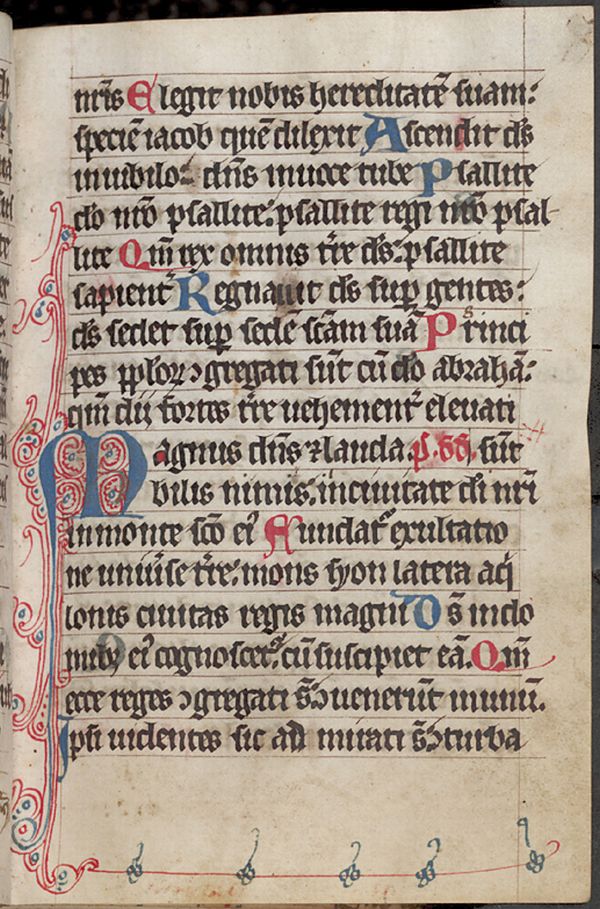 nr̄is Elegit nobis hereditatē suam:
speciē iacob quē dilexit Ascendit ds̄
in iubilo: dn̄s in uoce tube Psallite
do nr̄o psallite: psallite regi nr̄o psal-
lite Qm̄ rex omnis tr̄re ds̄: psallite
sapient̄ Regnauit ds̄ sup gentes:
ds̄ sedet sup sedē scām suā Princi
pes pplorꝝ ꝯgregati sūt cū do abrahā:
qm̄ dij fortes tr̄re uehement̄ eleuati
Magnus dn̄s ⁊ lauda. sūt
bilis nimis: in ciuitate di nr̄i
in monte scō ei᷒ Fundat᷑ exultatio
ne uniuſse tr̄re: mons syon latera aq̇
lonis ciuitas regis magni Ds̄ in do
mib᷒ ei᷒ cognoscet᷑: cū suscipiet eā. Qm̄
ecce reges ꝯgregati st̄ ꝫ uenerūt in unū.
Ipsi uidentes sic ad mirati st̄ ꝫ turba